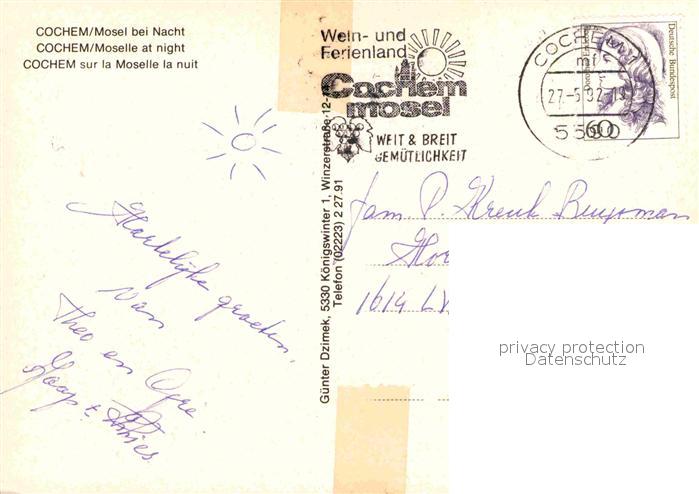 COCHEM/Mosel bei Nacht
COCHEM/Moselle at night
COCHEM sur la Moselle la nuit
Wein- und
Ferienland
Cochem
mosel
WEIT & BREIT
GEMÜTLICHKEIT
COCHEM
27.-5.92.-19
5590
60
Deutsche Bundespost
Günter Dzimek, 5330 Königswinter 1, Winzerstraße 12
Telefon (02223) 2 27 91
Hartelijke groeten,
van
Theo en
Jaap +
Fam P. Kreuk
1614 LV
privacy protection
Datenschutz